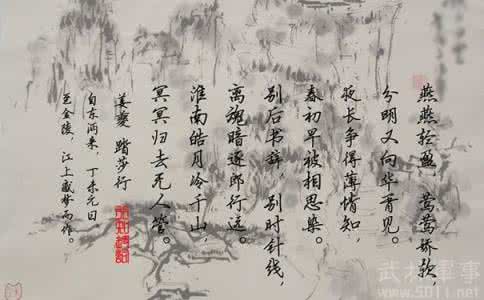 燕燕轻盈 莺莺娇软，
分明又向华胥见。
夜长争得薄情知，
春初早被相思染。
别后书辞，别时针线，
离魂暗逐郎行远。
淮南皓月冷千山，
冥冥归去无人管。
姜夔 踏莎行
自东沔来，丁未元日
至金陵，江上感梦而作。
武林軍事
www.5011.net